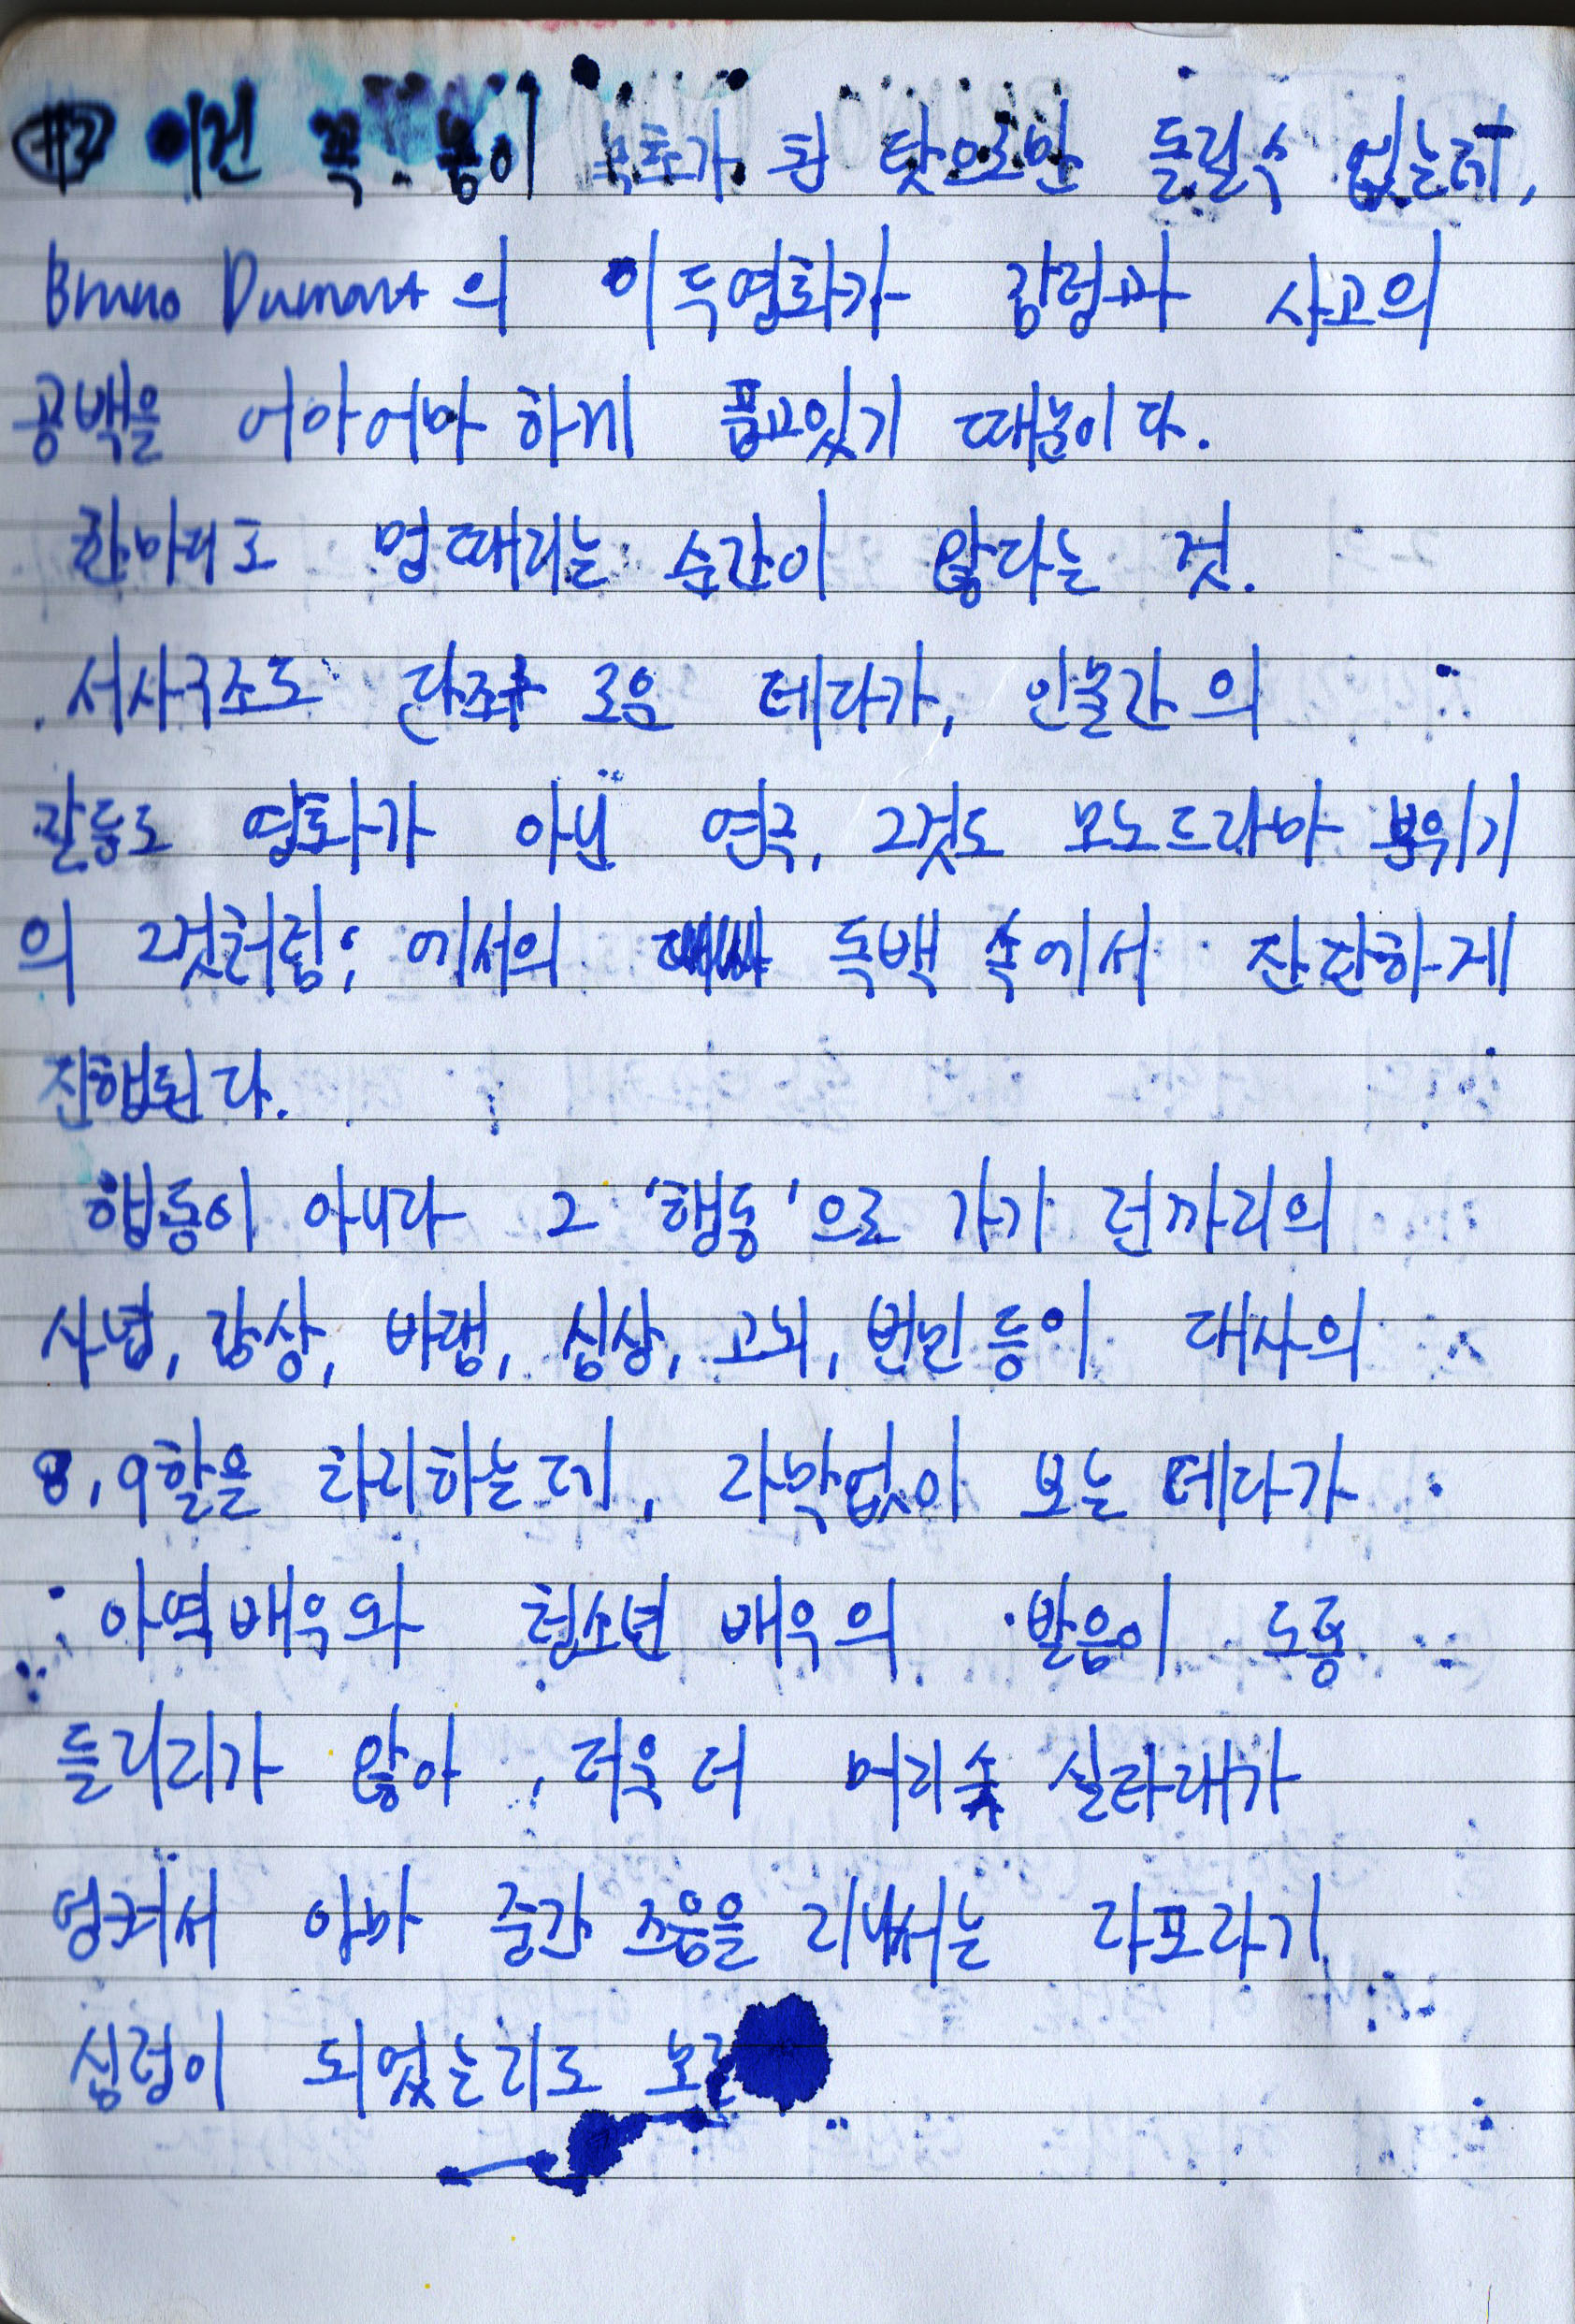 #2 이건 꼭 몸이 녹초가 된 탓으로만 돌릴수 없는데,
Bruno Dumont의 이 두영화가 감정과 사고의
공백을 어마어마 하게 품고있기 때문이다.
한마디로 멍때리는 순간이 많다는 것.
서사구조도 단조로운 데다가, 인물간의
갈등도 영화가 아닌 연극, 그것도 모노드라마 분위기
의 그것처럼; 에서의 독백 속에서 잔잔하게
진행된다.
행동이 아니라 그 '행동'으로 가기 전까지의
사념, 감상, 바램, 심상, 고뇌, 번민 등이 대사의
8, 9할을 차지하는데, 자막없이 보는 데다가
아역배우와 청소년 배우의 발음이 도통
들리지가 않아, 더욱 더 머리속 실타래가
엉켜서 아마 중간 즈음을 지나서는 자포자기
심정이 되었는지도